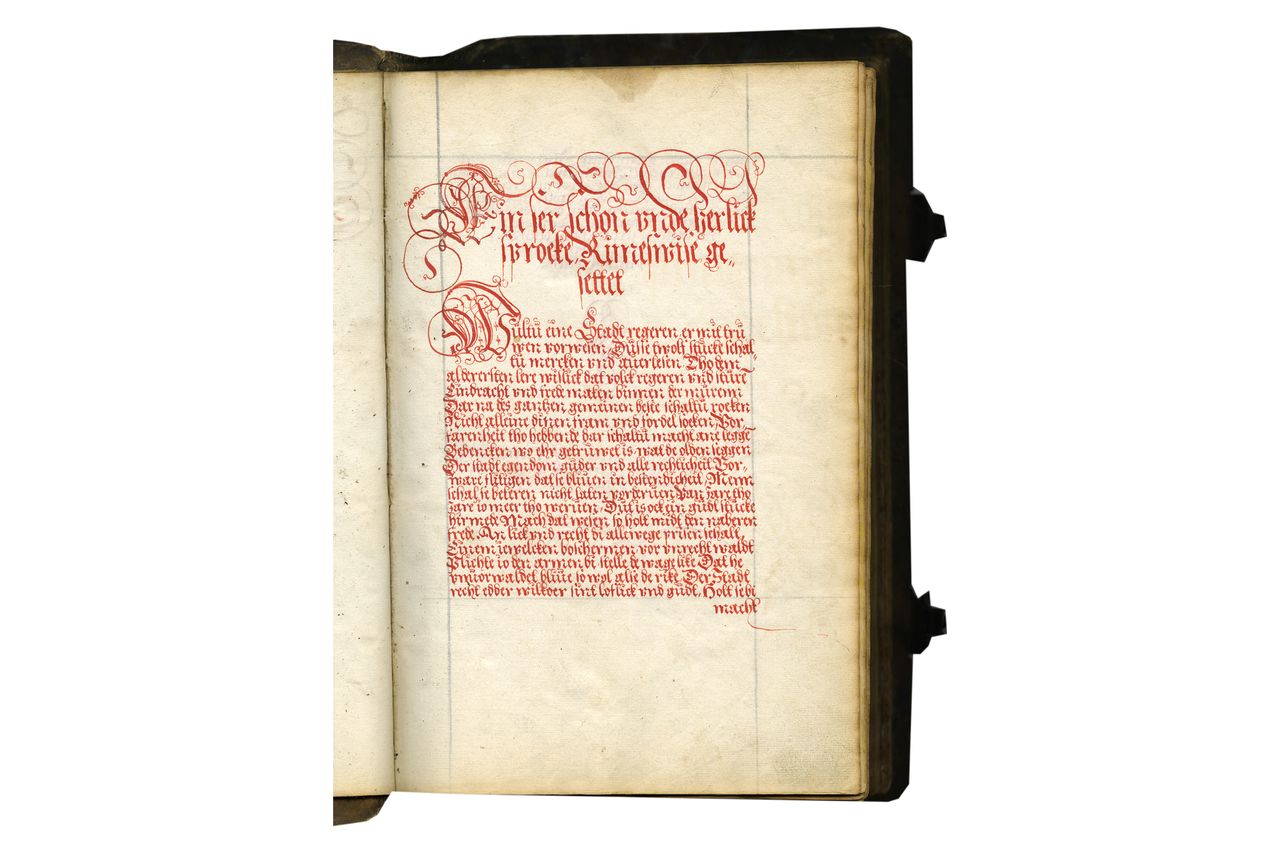 Ein ser schon vnde herlick
sproeke, Rimeswise ge„
settet
Wiltu eine Stadt regeren er mit trü
wen vorwesen Düsse twolf stücke schal„
tu mercken vnd auerlesen Tho dem
alderersten lere wislick dat volck regeren vnd stüre
Eindracht vnd frede maken binnen der müren
Dar na des gantzen gemeinen beste schaltu roeken
Nicht alleine dinen fram vnd fordel soeken, Vor„
farenheit tho hebbende dar schaltu macht ane leggē
Bedencken wo ehr getruwet is wat de olden seggen
Der stadt egendom güder vnd alle rechticheit Vor„
ware flitigen dat se bliuen in bestendicheit Menn
schal se beteren nicht laten vorderuen Van jare tho
Jare io meer tho weruen, Dut is ock ein gudt stücke
hirmede Mach dat wesen so holt midt den naberen
frede. An lick vnd recht di allewege prüsen schalt,
Einem iewelcken boschermen vor vnrecht waldt
Plichte io den armen bi stelle de wage like Dat he
vnuorwaldet bliue so wol alse de rike Der Stadt
recht edder willkoer sint loflick vnd gudt, Holt se bi
macht